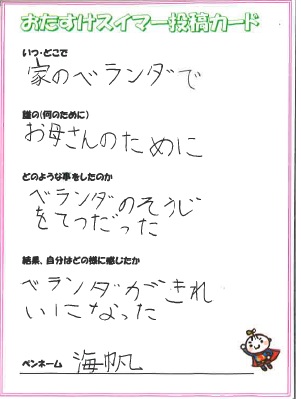 おたすけスイマー投稿カード
いつ・どこで
家のベランダで
誰の(何のために)
お母さんのために
どのような事をしたのか
ベランダのそうじ
をてつだった
結果、自分はどの様に感じたか
ベランダがきれ
いになった
ペンネーム 海帆